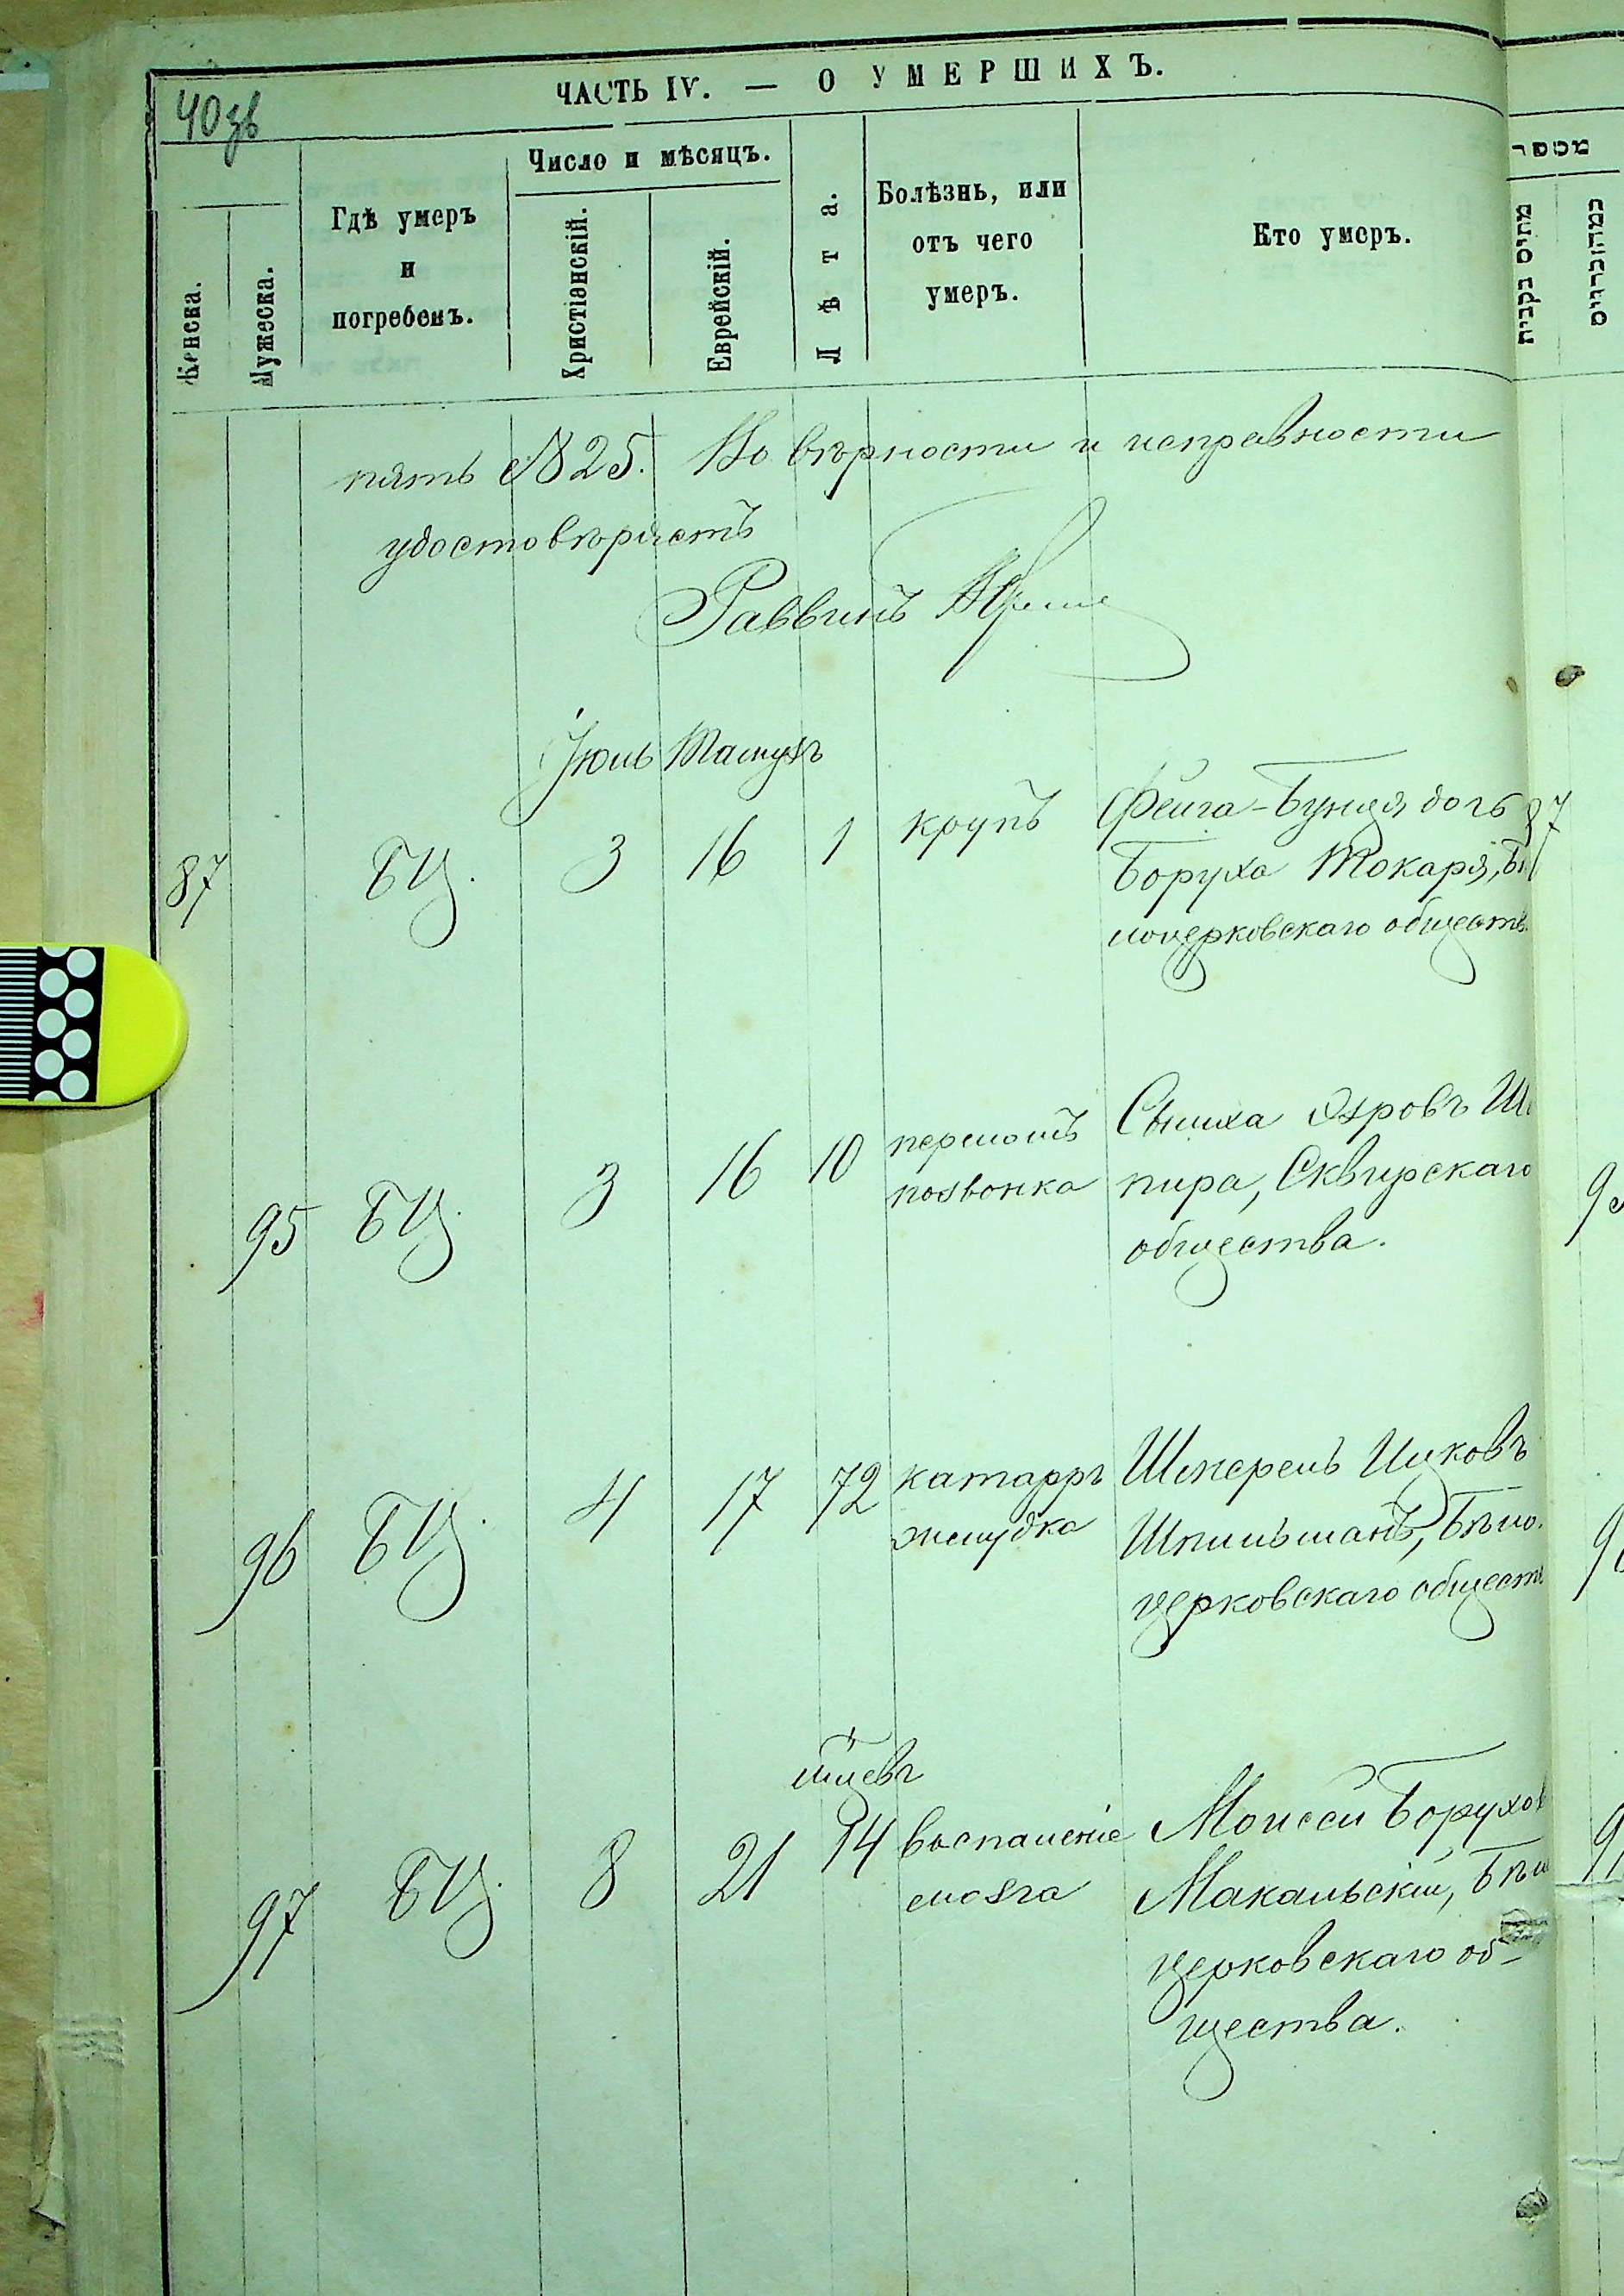 ЧАСТЬ IV. — О УМЕРШИХЪ.
40зв
Женска.
Мужеска.
Гдѣ умеръ
и
погребенъ.
Число и мѣсяцъ.
Христіанскій.
Еврейскій.
Лѣта.
Болѣзнь, или
отъ чего
умеръ.
Кто умеръ.
מספר
מתים נקבות
כמהזכרים
пять №25. Во вѣрности и исправности
удостовѣряетъ
Раввинъ
Іюль Тамузъ
87 БЦ. 3 16 1 крупъ Фейга-Бунця дочь 87
Боруха Токаря, Бѣ
лоцерковскаго обществ.
95 БЦ. 3 16 10 переломъ позвонка
Сымха Азровъ Ша
пира, Сквирскаго
общества.
96 БЦ. 4 17 72 катарръ желудка
Шмерель Ицковъ
Шпильманъ, Бѣло.
церковскаго обществ
97 БЦ. 8 21 14 мѣсяцевъ воспаленіе мозга
Моисей Борухов
Макальскій, Бѣло
церковскаго об-
щества.